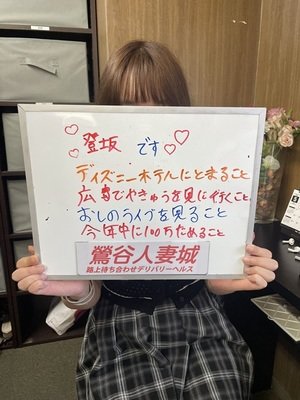 登坂 です
ディズニーホテルにとまること
広島でやきゅうを見に行くこと。
おしのライブを見ること
今年中に100万ためること
鶯谷人妻城
路上待ち合わせデリバリーヘルス